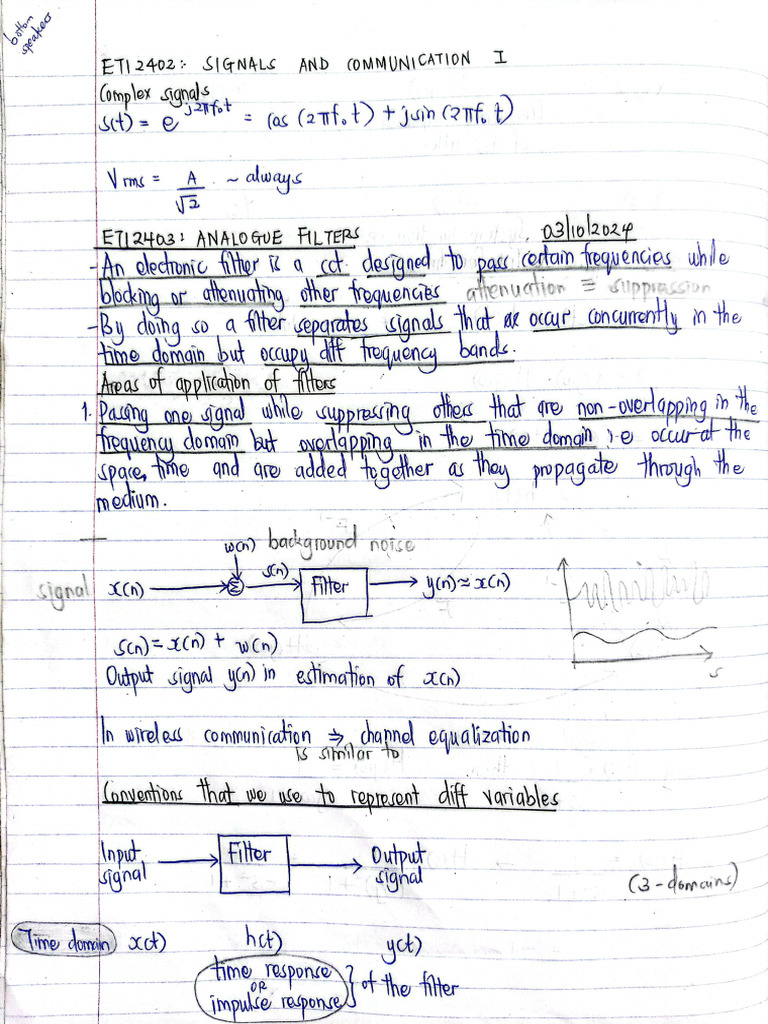 bottom
speakers
ETI 2402: SIGNALS AND COMMUNICATION I
Complex signals
s(t) = e^j2πf₀t = Cos (2πf₀t) + jsin (2πf₀t)
Vrms = A/√2 ~ always
ETI 2403: ANALOGUE FILTERS 03/10/2024
- An electronic filter is a cct. designed to pass certain frequencies while
blocking or attenuating other frequencies attenuation ≡ suppression
- By doing so a filter separates signals that occur concurrently in the
time domain but occupy diff frequency bands.
Areas of application of filters
1. Passing one signal while suppressing others that are non-overlapping in the
frequency domain but overlapping in the time domain i.e occur at the
space, time and are added together as they propagate through the
medium.
w(n) background noise
signal x(n) Σ s(n) Filter y(n) ≈ x(n)
s(n) = x(n) + w(n)
Output signal y(n) in estimation of x(n)
s
In wireless communication ⇒ channel equalization
is similar to
Conventions that we use to represent diff variables
Input signal Filter Output signal
(3-domains)
Time domain x(t) h(t) y(t)
time response
OR
impulse response } of the filter